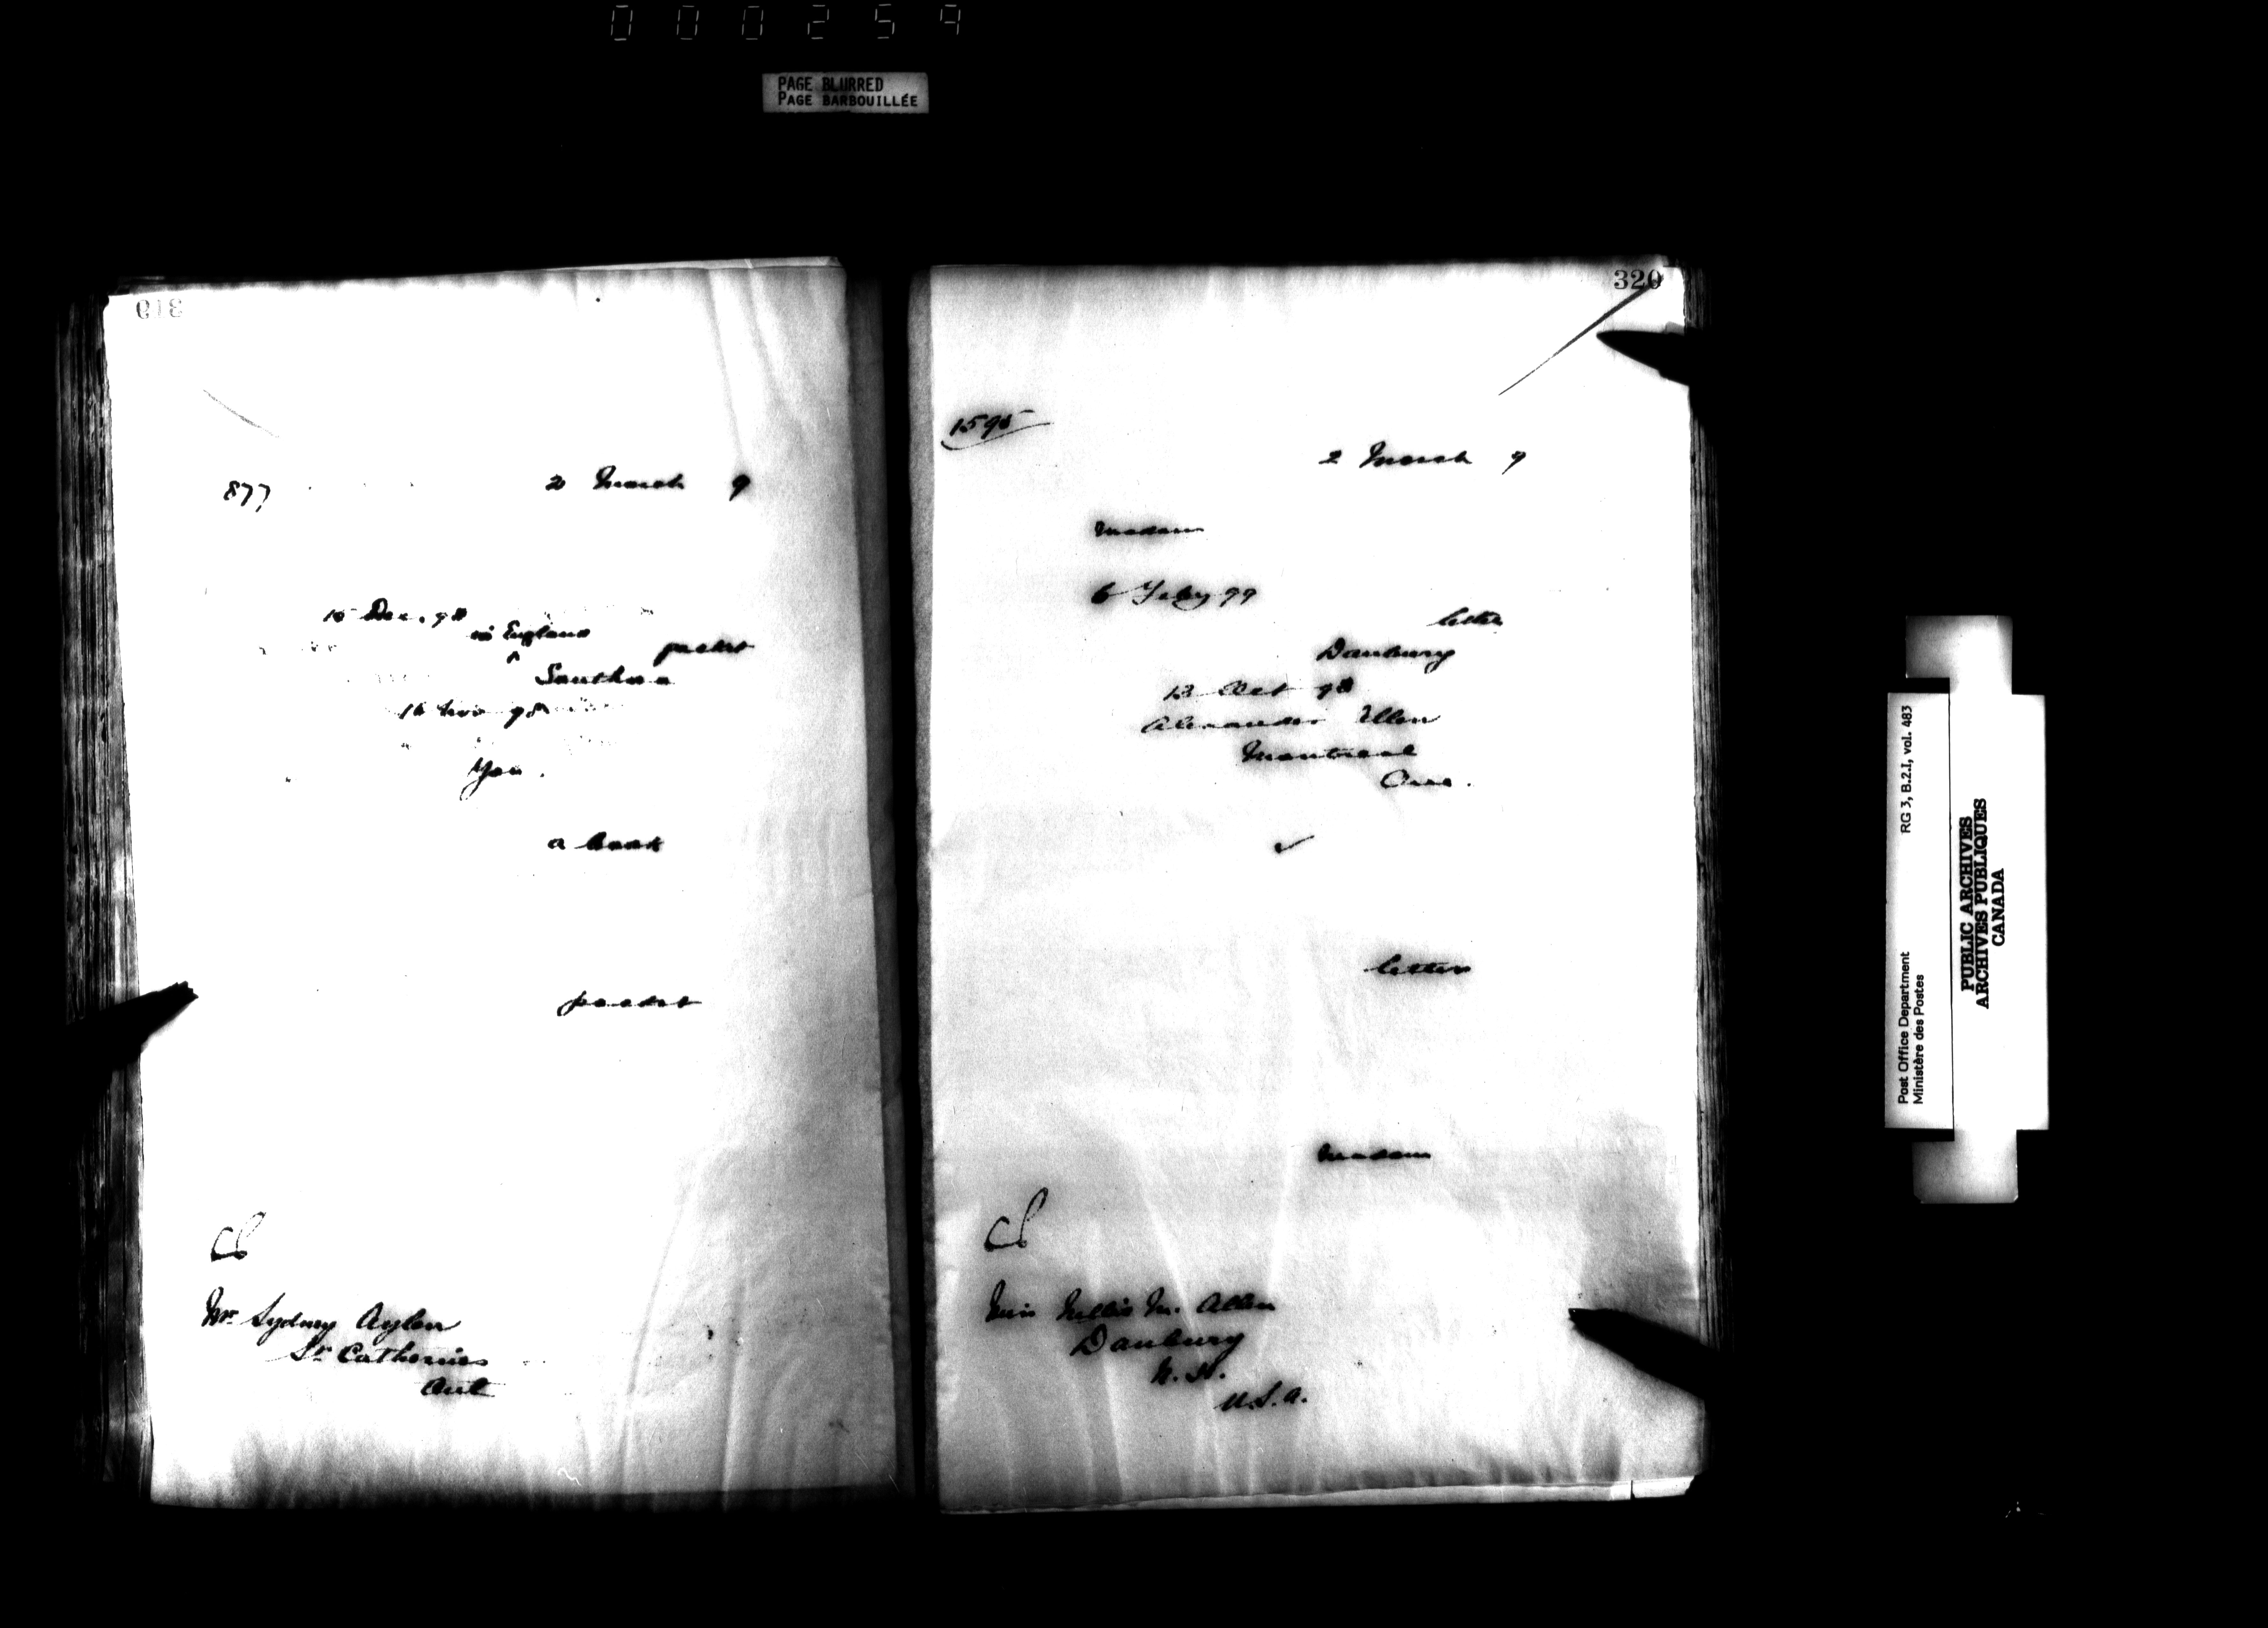 000259
PAGE BLURRED
PAGE BARBOUILLÉE
319
877
2 March 9
15 Dec. 98
via England
^
packet
16 Nov 98
You.
a book
packet
Mr Sydney Aylen
St Catherines
Ont
320
1595
2 March 9
Madam
6 Feby 99
letter
Danbury
13 Oct 98
Alexander Allen
Montreal
Que.
✓
letter
Madam
Miss Nellie M. Allen
Danbury
N.H.
U.S.A.
Post Office Department RG 3, B.2.I, vol. 483
Ministère des Postes
PUBLIC ARCHIVES
ARCHIVES PUBLIQUES
CANADA